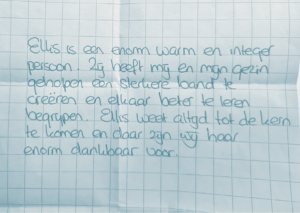 Ellis is een enorm warm en integer
persoon. Zij heeft mij en mijn gezin
geholpen een sterkere band te
creëren en elkaar beter te leren
begrijpen. Ellis weet altijd tot de kern
te komen en daar zijn wij haar
enorm dankbaar voor.